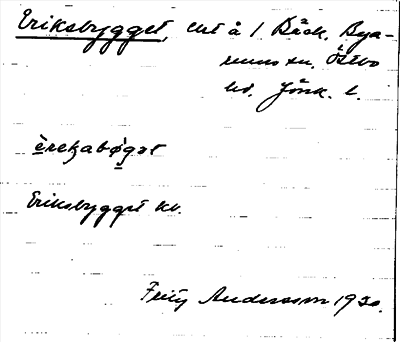 Eriksbygget, lht å 1 Bäck, Bya-
rums sn. Östbo
hd. Jönk. l.
èrekabø̀gət
Eriksbygget kv.
Fritz Andersson 1920.